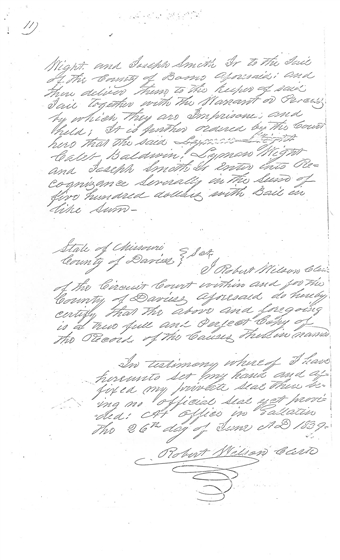 11)
Wight. and Joseph Smith Jr to the Jail
of the County of Boone aforesaid; and
there deliver them to the keeper of said
Jail together with the Warrant or Process
by which they are Imprisone; and
held; It is further ordered by the Court
here that the said Lyman Wight
Caleb Baldwin, Lyman Wight
and Joseph Smith Jr enter into Re-
cognizance severally in the sum of
five hundred dollars with Bail in
like Sum-
State of Missouri
County of Daviess } Sct
I Robert Wilson Clerk
of the Circuit Court within and for the
County of Daviess aforesaid do hereby
certify that the above and foregoing
is a true full and Perfect Copy of
the Record of the Causes therein named
In testimony whereof I have
hereunto set my hand and af-
fixed my private seal there be-
ing no official seal yet provi-
ded: At Office in Gallatin
the 26th day of June AD 1839-
Robert Wilson Clerk